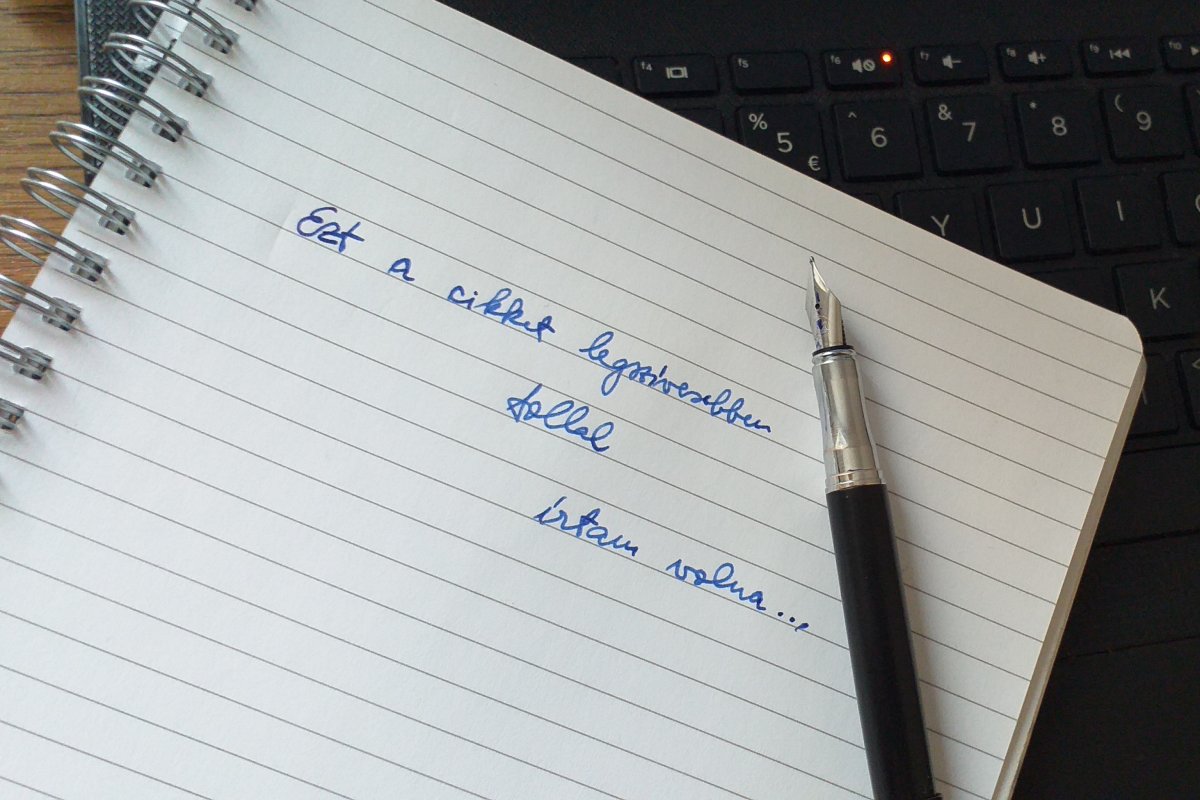 Ezt a cikket legszívesebben
tollal
írtam volna...
f4 f5 f6 f7 f8 f9 f10
% 5 € ^ 6 & 7 * 8 ( 9
Y U I
K